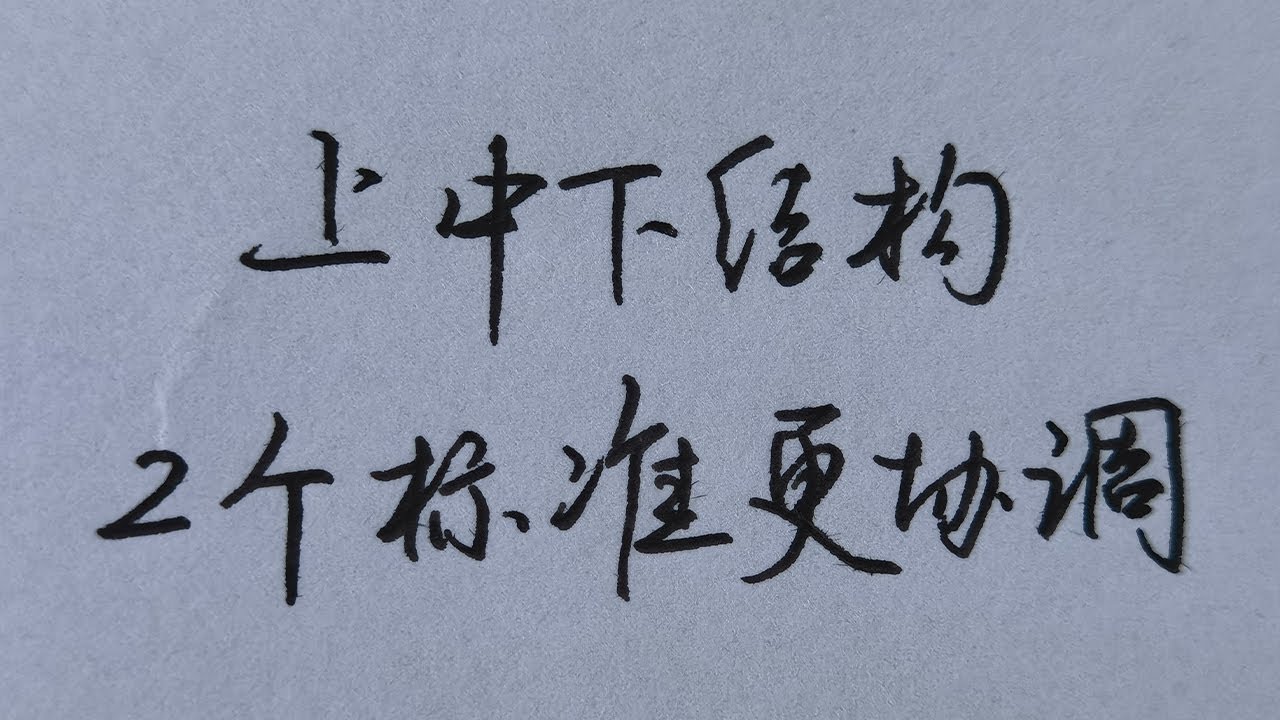 上中下结构
2个标准更协调